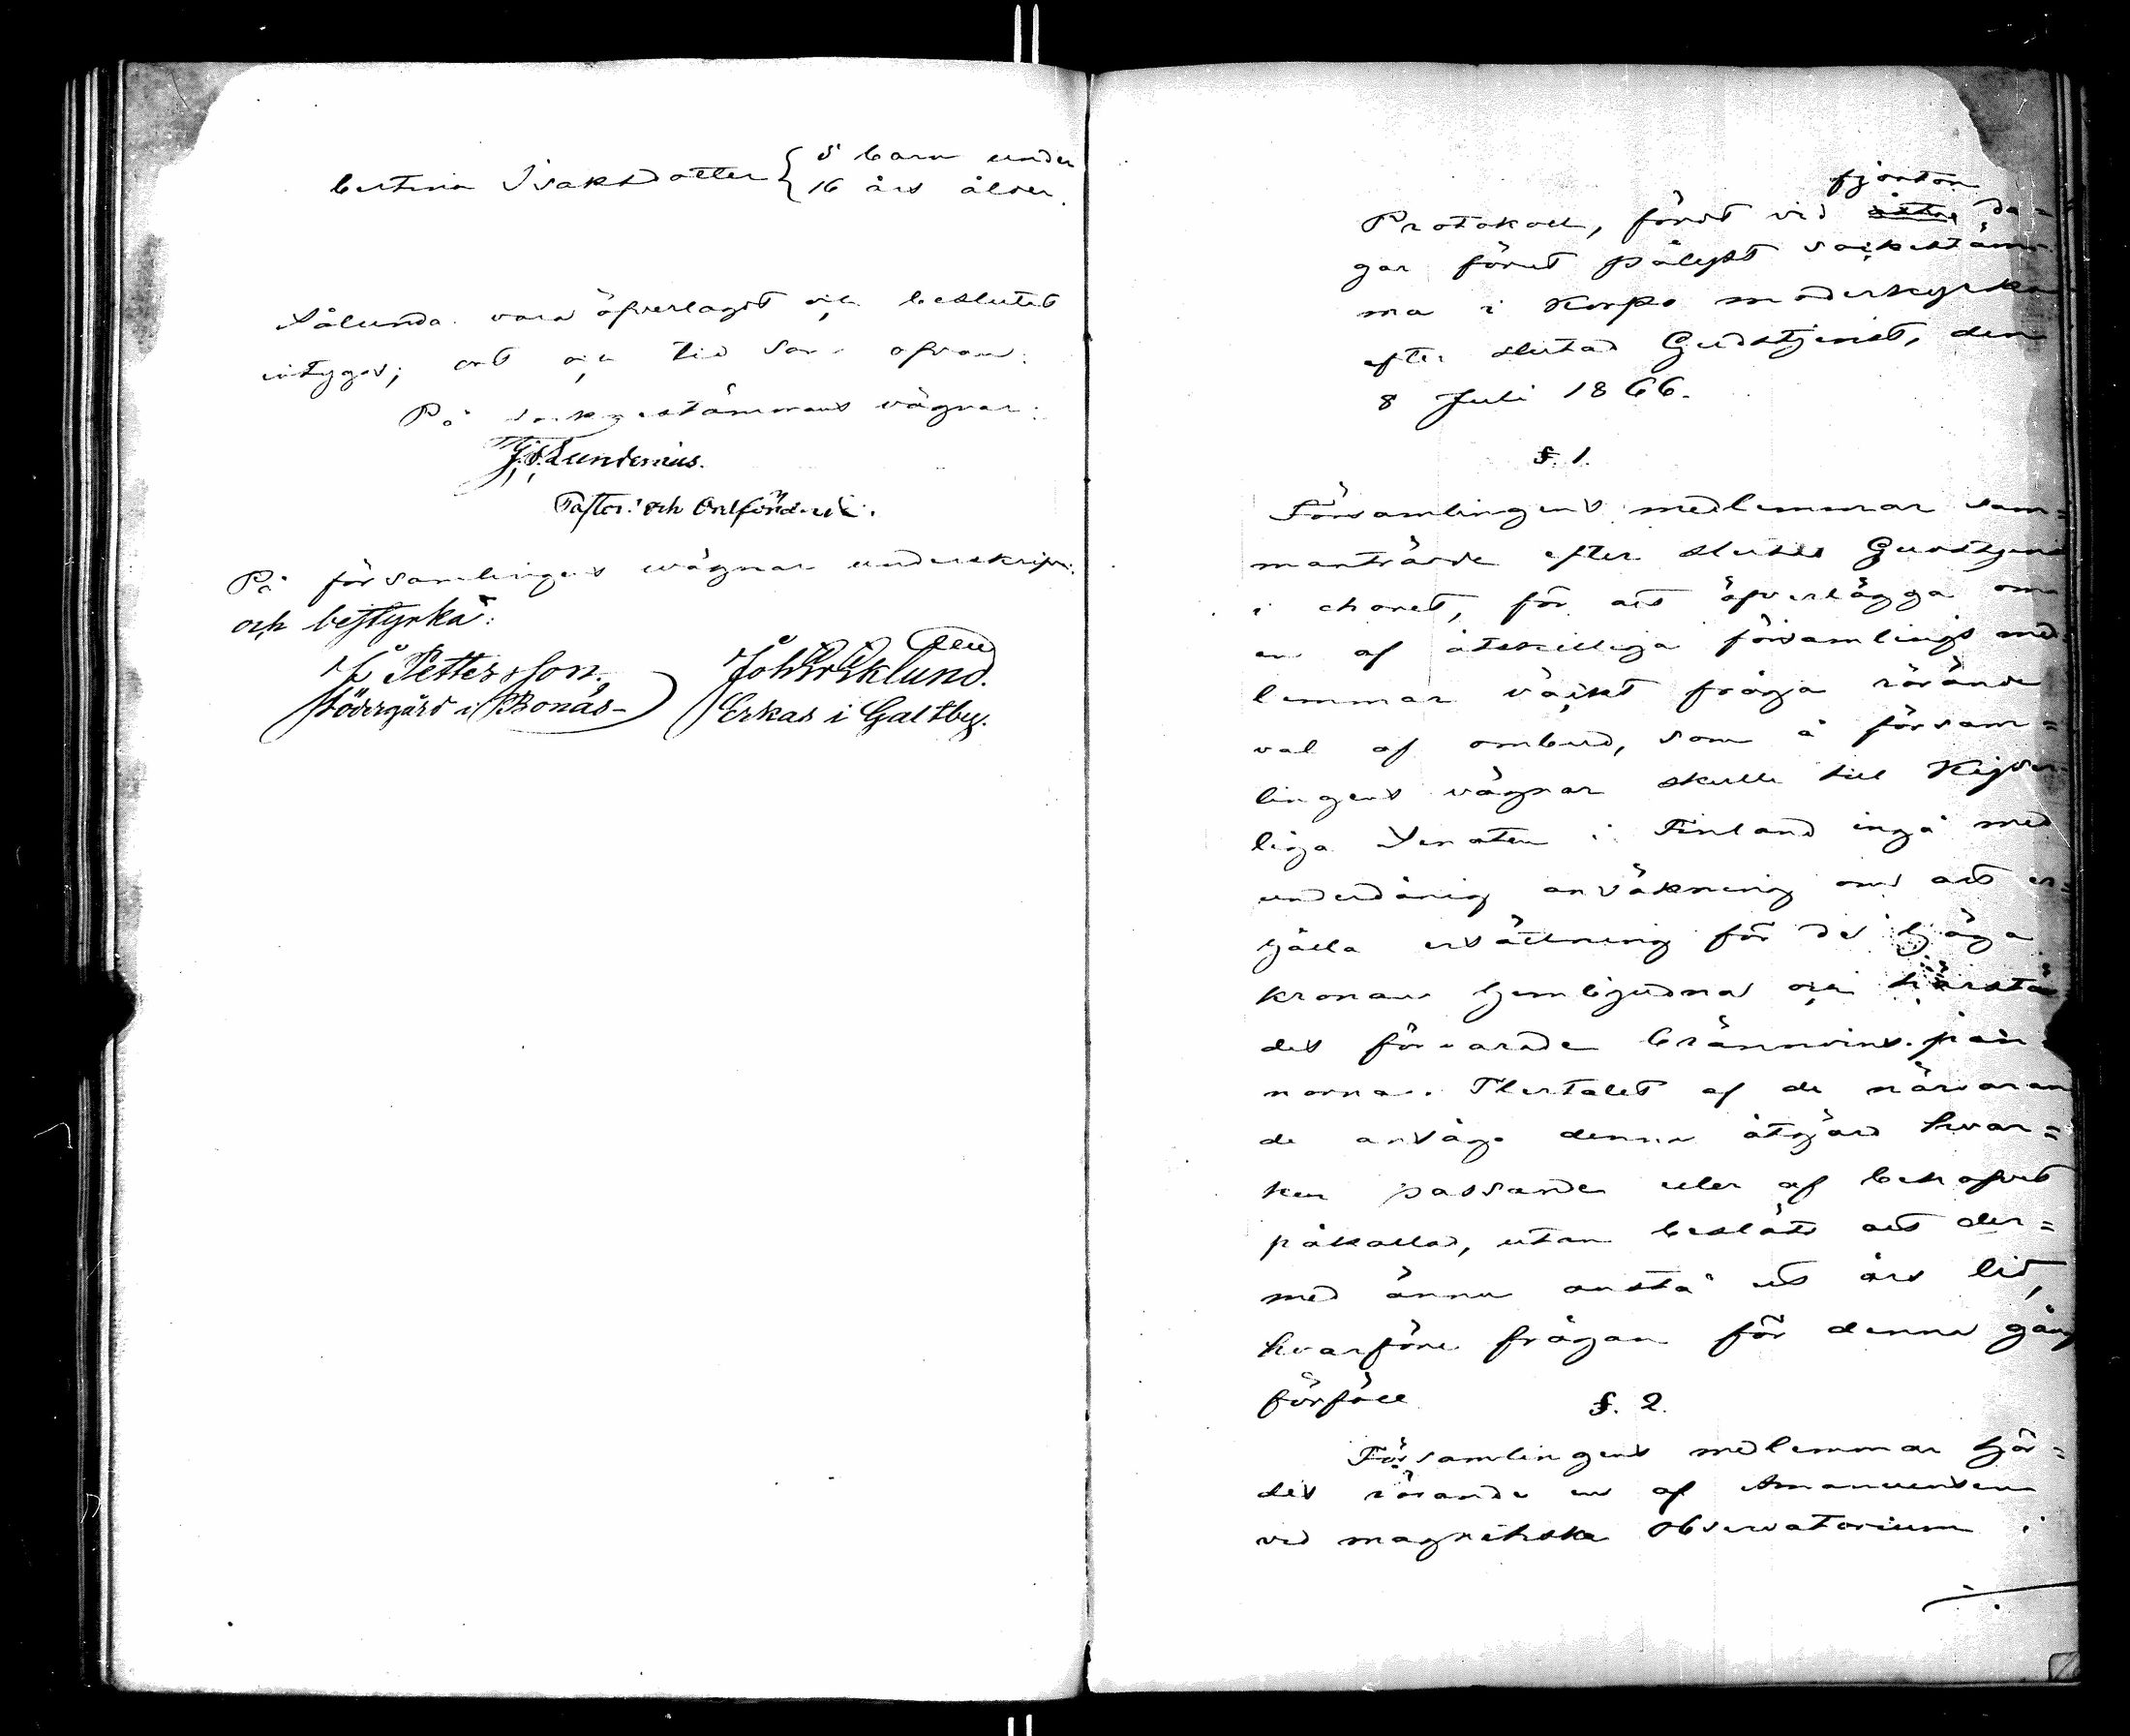 bertina Isaksdotter { 5 barn under
16 års ålder.
Sålunda vara öfverlagdt och beslutet
intygas; ort och tid som ofvan.
På sockenestämmans vägnar:
Lundenius.
Pastor och Ordförande.
På församlingens vägnar underskrifva
och bestyrka:
Pettersson. Joh. Eklund.
Södergård i Bonäs Erkas i Galtby.
fjorton
Protokoll, fördt vid åtta da=
gar förut pålyst sockestäm=
ma i Korpo moderkyrka
efter slutad Gudstjenst, den
8 Juli 1866.
§. 1.
Församlingens medlemmar sam=
manträdde efter slutad Gudstjenst
i choret, för att öfverlägga om
en af åtskilliga församlings med=
lemmar väckt fråga rörande
val af ombud, som å försam=
lingens vägnar skulle till Kejser=
liga Senaten i Finland ingå med
underdånig ansökning om att er=
hålla ersättning för de Höga
kronan hembjudna och härstä
des förvarade brännvins pan=
norna. Flertalet af de närvaran
de ansåg denna åtgärd hvar=
ken passande eller af behofvet
påkallad, utan beslöts att der=
med ännu anstå ett års tid,
hvarföre frågan för denna gång
förföll.
§. 2.
Församlingens medlemmar hör=
des rörande en af Amanuensen
vid magnetiska Observatorium i